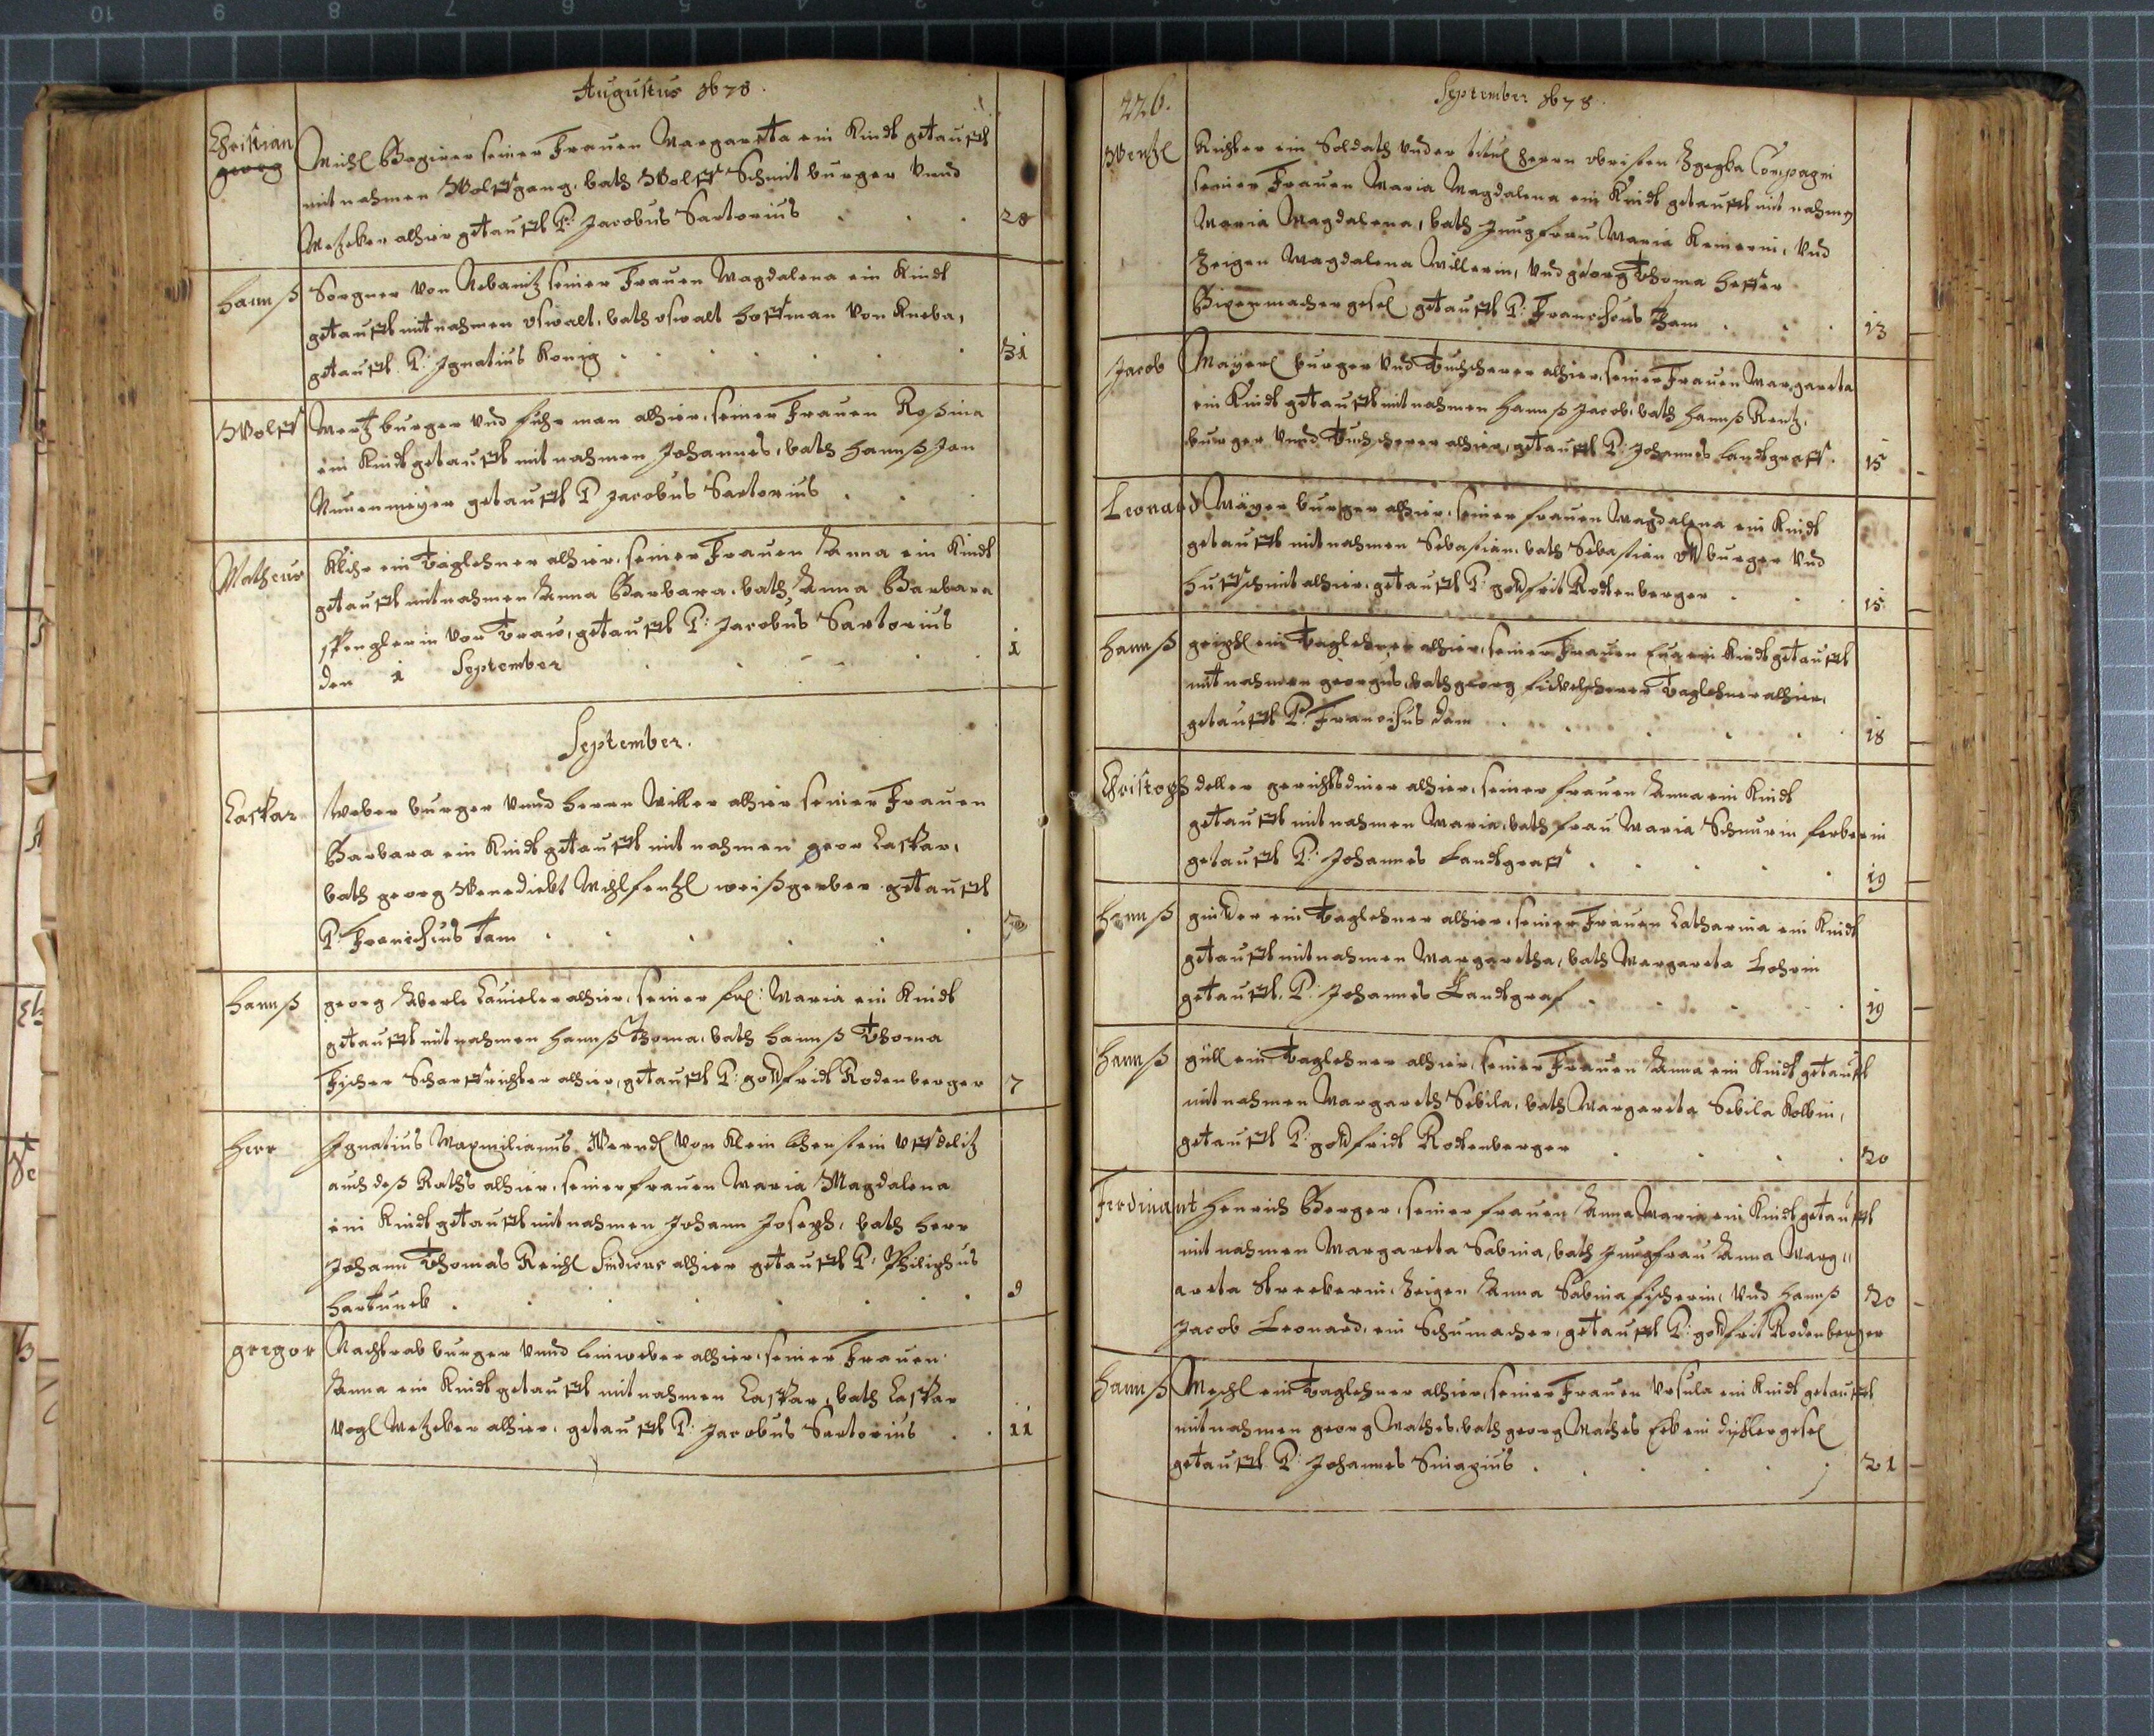 Augustus 1678.
Christian
georg
Michl Wagner seiner Frauen Margareta ein Kindt getaufft
mit nahmen Wolffgang, bath Wolff Schmit burger vnnd
Metzcker alhier getaufft P: Jacobus Sartorius 28
Hannß Sorgner von Nebanitz seiner Frauen Magdalena ein Kindt
getaufft mit nahmen oswalt, bath oswalt Hoffman von Kneba,
getaufft P: Ignatius Konig 31
Wolff Mertz burger vnd fuhrman alhier, seiner Frauen Roßina
ein Kindt getaufft mit nahmen Johannes, bath Hannß Jan
getaufft P Jacobus Sartorius
Matheus ein taglehner alhier, seiner Frauen Anna ein Kindt
getaufft mit nahmen Anna Barbara, bath Anna Barbara
Spenglerin von getaufft P: Jacobus Sartorius
den 1 September 1
September.
Caspar Weber burger vnnd Herrn Miller alhier seiner Frauen
Barbara ein Kindt getaufft mit nahmen geor Caspar,
bath georg Benedickt weißgerber getaufft
P: Francischus Tam
Hannß georg Aberle alhier, seiner Maria ein Kindt
getaufft mit nahmen Hannß Thoma, bath Hannß Thoma
Fischer Scharffrichter alhier, getaufft P: gottfridt Rodenberger 7
Herr Ignatius Maxmilianus von Klein
auch deß Raths alhier, seiner frauen Maria Magdalena
ein Kindt getaufft mit nahmen Johann Joseph, bath Herr
Johann Thomas Reichl Sindicus alhier getaufft P: Philiphus
Hartunck 9
gregor Nachtrab burger vnnd leinweber alhier, seiner Frauen
Anna ein Kindt getaufft mit nahmen Caspar, bath Caspar
Vogl Metzcker alhier, getaufft P: Jacobus Sartorius 11
226.
September 1678.
Wentzl Richter ein Soldath vnder titul Herrn obristen Compagni
seiner Frauen Maria Magdalena ein Kindt getaufft mit nahmen
Maria Magdalena, bath Jungfrau Maria vnd
Zeigen Magdalena Millerin, vnd georg Thoma
Bixenmacher gesel getaufft P: Francischus Tam 13
Jacob Mayerl burger vnd tuchscherer alhier, seiner Frauen Margareta
ein Kindt getaufft mit nahmen Hannß Jacob, bath Hannß Rentz,
burger vnnd tuchscherer alhier, getaufft P: Johannes Landtgraff. 15
Leonard Mayer burger alhier, seiner frauen Magdalena ein Kindt
getaufft mit nahmen Sebastian, bath Sebastian Ott burger vnd
Hueffschmit alhier, getaufft P: gottfrit Rodtenberger 15
Hannß ein taglehner alhier, seiner Frauen Eua ein Kindt getaufft
mit nahmen georgius, bath georg taglehner alhier,
getaufft P: Francischus dam 18
Christoph deller gerichtsdiner alhier, seiner frauen Anna ein Kindt
getaufft mit nahmen Maria, bath frau Maria Schnurin ferberin
getaufft P: Johannes Landtgraff 19
Hannß ein taglehner alhier, seiner Frauen Catharina ein Kindt
getaufft mit nahmen Margaretha, bath Margareta Lohrin
getaufft, P: Johannes Landtgraf 19
Hannß güll ein taglehner alhier, seiner Frauen Anna ein Kindt getaufft
mit nahmen Margareth Sibila, bath Margareta Sibila Kolbin,
getaufft P: gottfridt Rodtenberger 20
Ferdinant Henrich Berger, seiner frauen Anna Maria ein Kindt getaufft
mit nahmen Margareta Sabina, bath Jungfrau Anna Marg=
areta Streckerin, Zeigen Anna Sabina fischerin, vnd Hannß 20
Jacob Leonard, ein Schumacher, getaufft P: gottfrit Rodenberger
Hannß ein taglehner alhier, seiner Frauen Vrsula ein Kindt getaufft
mit nahmen georg Mathes, bath georg Mathes ein dischlergesel
getaufft P: Johannes 21